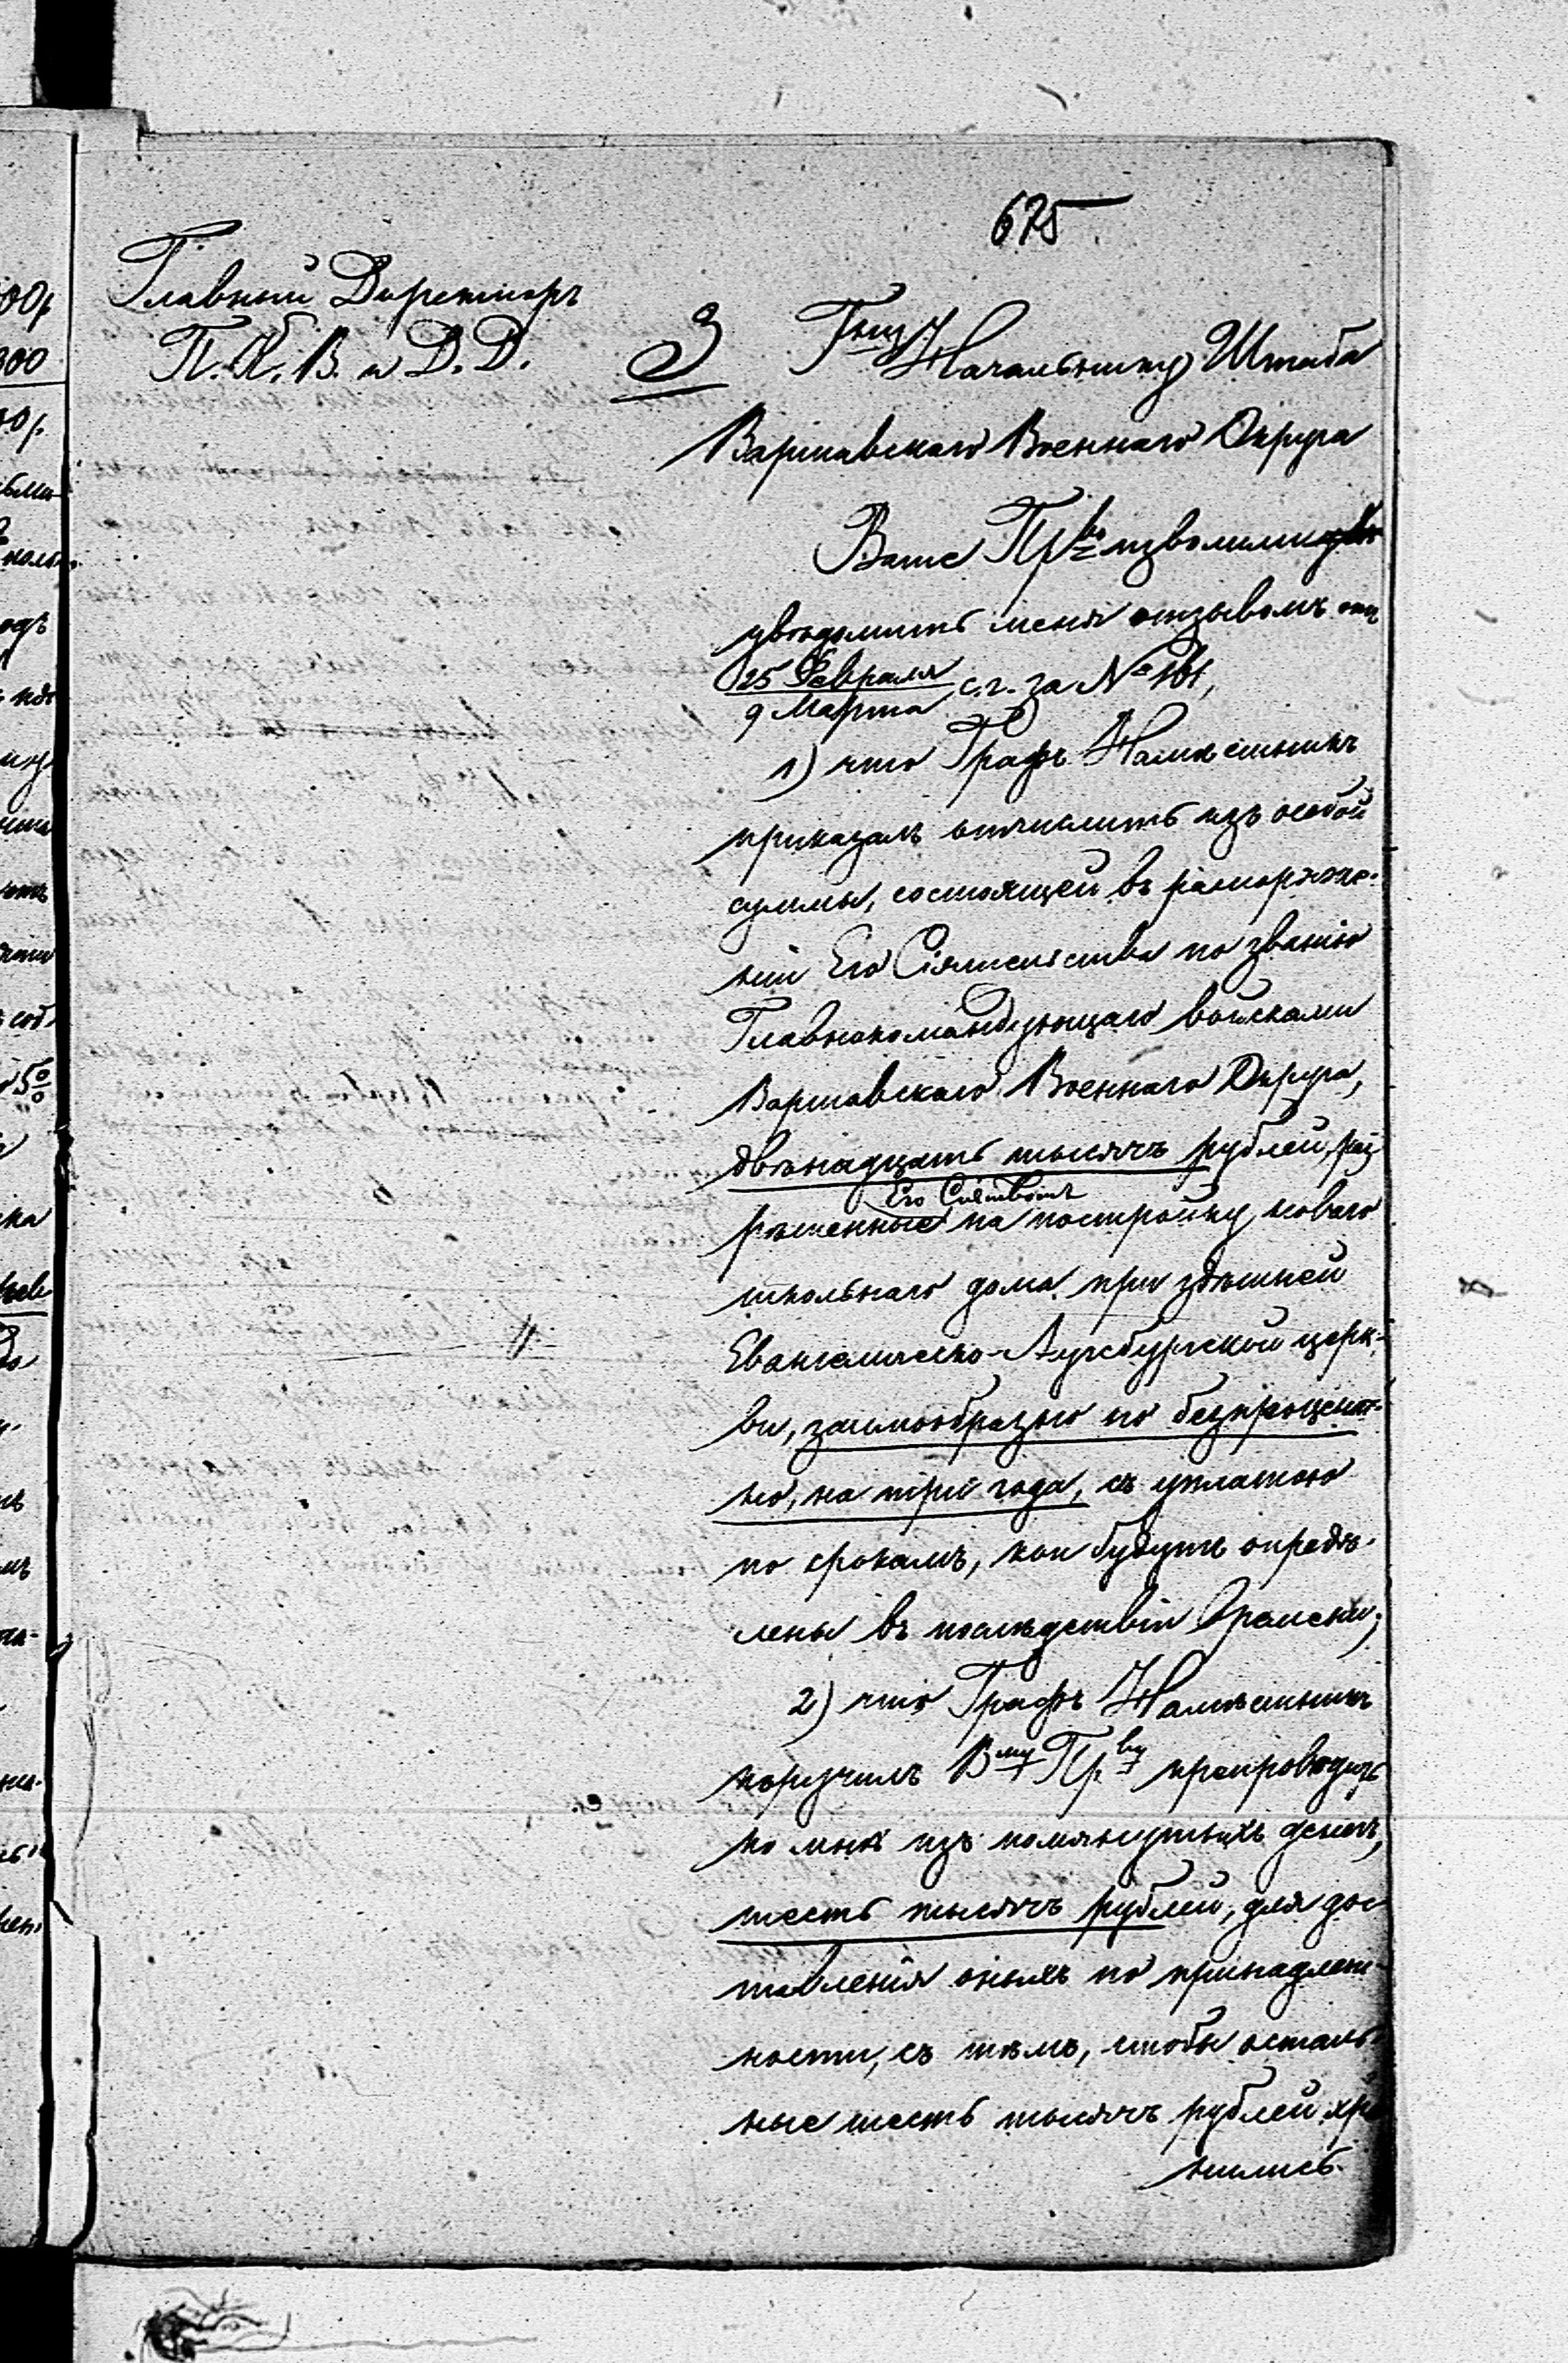 675
Главный Директоръ
П. К. В. и Д. Д.
Г<sup>ну</sup> Начальнику Штаба
Варшавскаго Военнаго Округа
Ваше Пр<sup>во</sup> изволили
увѣдомить меня отзывомъ отъ
25 Февраля
9 Марта с. г. за № 161,
1) что Графъ Намѣстникъ
приказалъ отчислить изъ особой
суммы, состоящей въ распоряже-
ніи Его Сіятельства по званію
Главнокомандующаго войсками
Варшавскаго Военнаго Округа,
двѣнадцать тысячъ рублей, раз
Его Сіятвомъ
рѣшенные на постройку новаго
школьнаго дома при здѣшней
Евангелическо-Аугсбургской церк-
ви, заимообразно но безпроцент-
но, на три года, съ уплатою
по срокамъ, кои будутъ опредѣ-
лены въ послѣдствіи времени;
2) что Графъ Намѣстникъ
поручилъ В<sup>му</sup> Пр<sup>ву</sup> препроводить
ко мнѣ изъ помянутыхъ денегъ,
шесть тысячъ рублей, для дос
тавленія оныхъ по принадлеж-
ности, съ тѣмъ, чтобы осталь-
ные шесть тысячъ рублей хра
нились